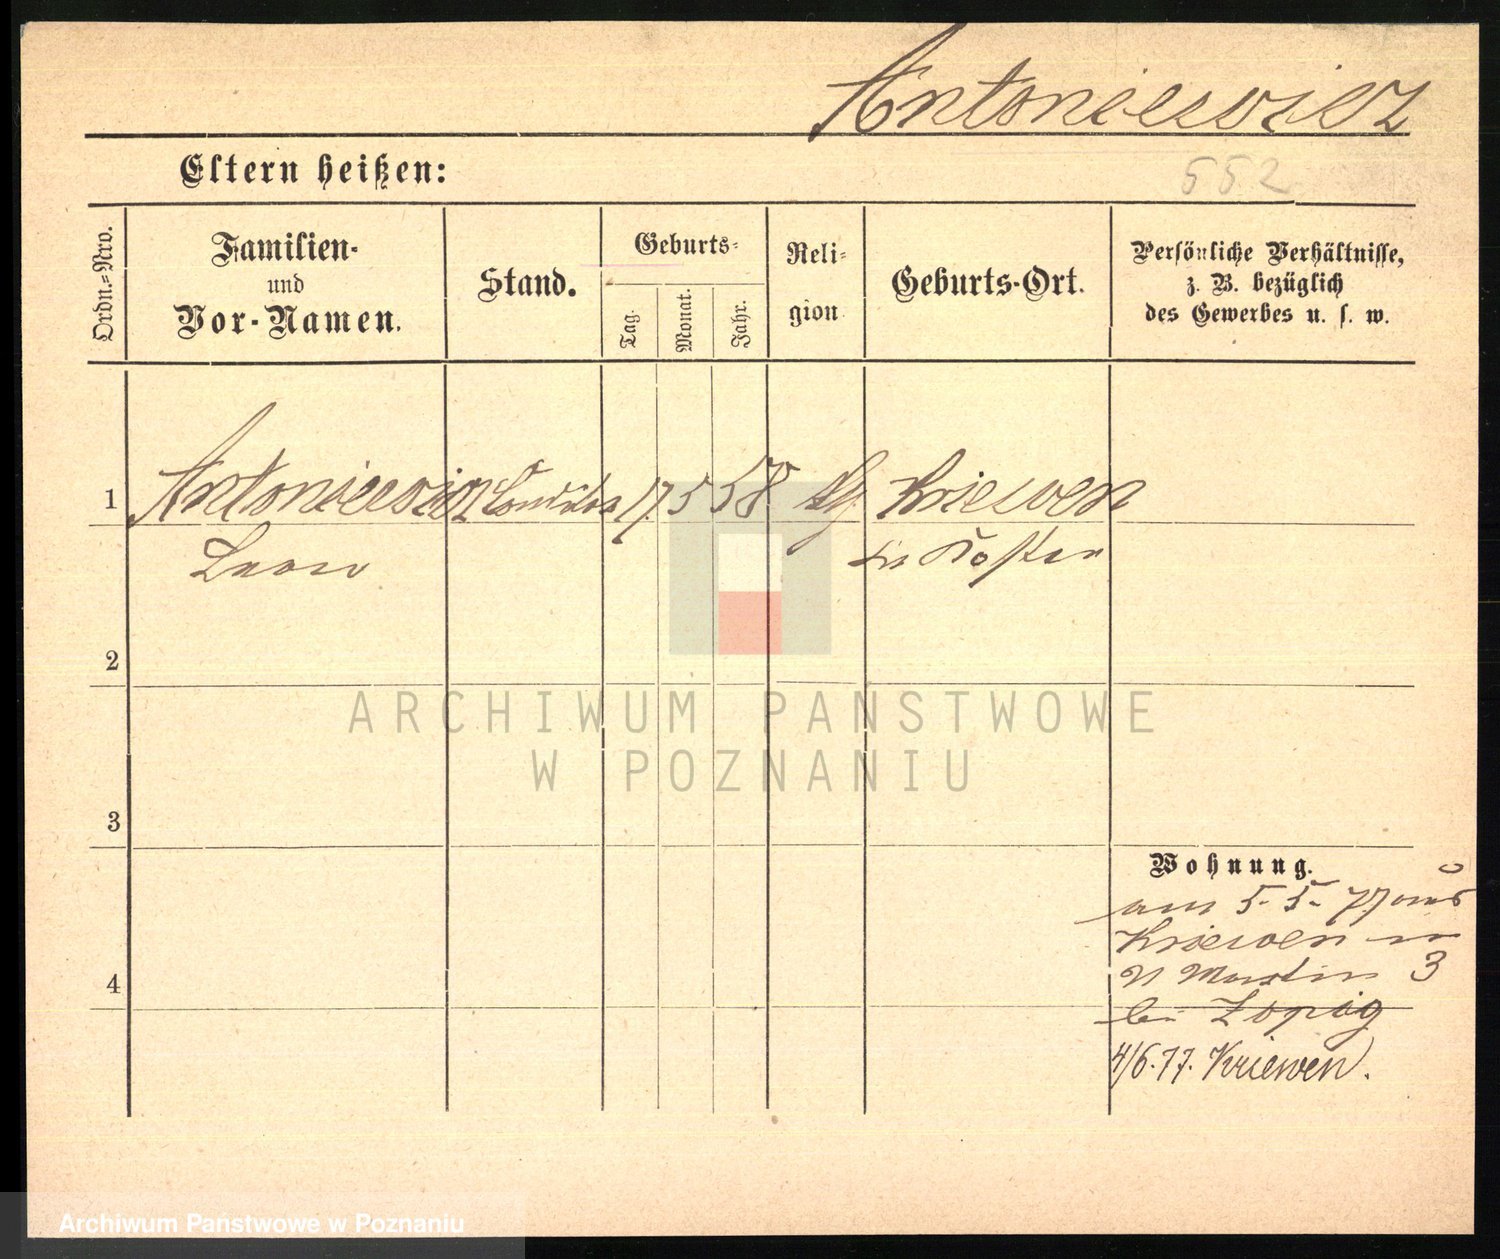 Antoniewicz
Eltern heißen:
552
Ordn.=Nro.
Familien-
und
Vor-Namen.
Stand.
Geburts-
Tag.
Monat.
Jahr.
Reli-
gion
Geburts-Ort.
Persönliche Verhältnisse,
z. B. bezüglich
des Gewerbes u. s. w.
1 Antoniewicz 17 5 58 Kriewen
Leon Kr Kosten
2
3
4
Wohnung.
am 5. 5. 77 aus
Kriewen
Martin 3
bei
4/6.77. Kriewen.
ARCHIWUM PAŃSTWOWE
W POZNANIU
Archiwum Państwowe w Poznaniu